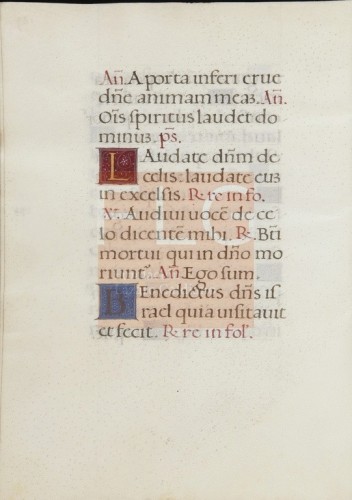 Añ. A porta inferi erue
dñe animam meaz. Añ.
Oĩs spiritus laudet do
minuz. ps.
Laudate dñm de
celis. laudate euz
in excelsis. R. re in fo.
V. Audiui uocẽ de ce
lo dicentẽ mihi. R. Bti
mortui qui in dño mo
riunt'. Añ. Ego sum.
Benedictus dñs is
rael quia uisitauit
et fecit. R. re in fol'.